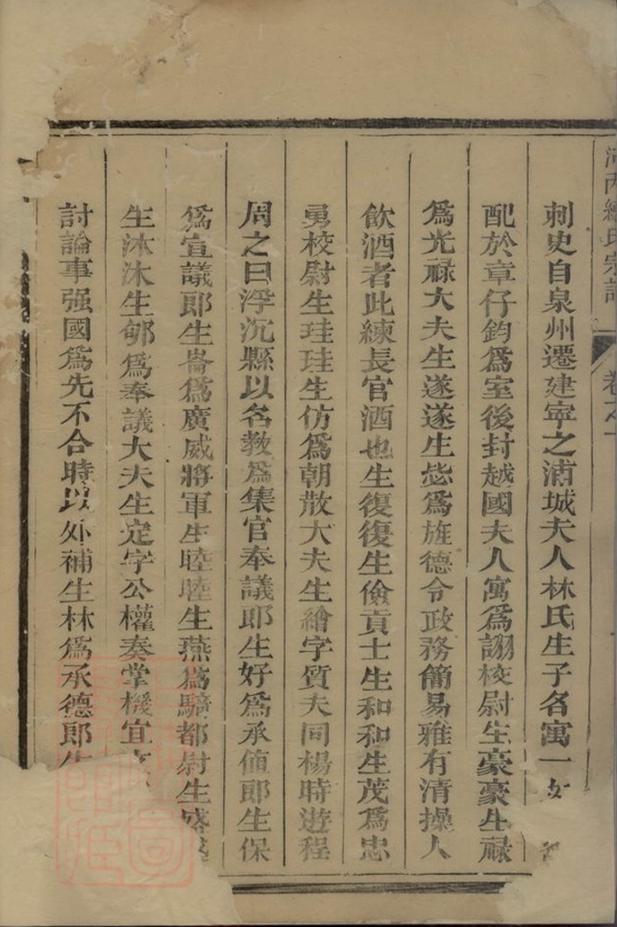 氏宗譜 卷之一
刺史自泉州遷建寧之浦城夫人林氏生子名寓一女
配於章仔鈞為室後封越國夫人寓為翊校尉生豪豪生祿
為光祿大夫生遂遂生㤠為旌德令政務簡易雅有清操人
飲酒者此練長官酒也生復復生儉貢士生和和生茂為忠
勇校尉生珪珪生仿為朝散大夫生繪字質夫同楊時遊程
周之曰浮沉縣以名教為集官奉議郎生好為承值郎生保
為宣議郎生崙為廣威將軍生睦睦生燕為騎都尉生盛盛
生沐沐生邹為奉議大夫生定字公權奏掌機宜文
討論事强國為先不合時以外補生林為承德郎生